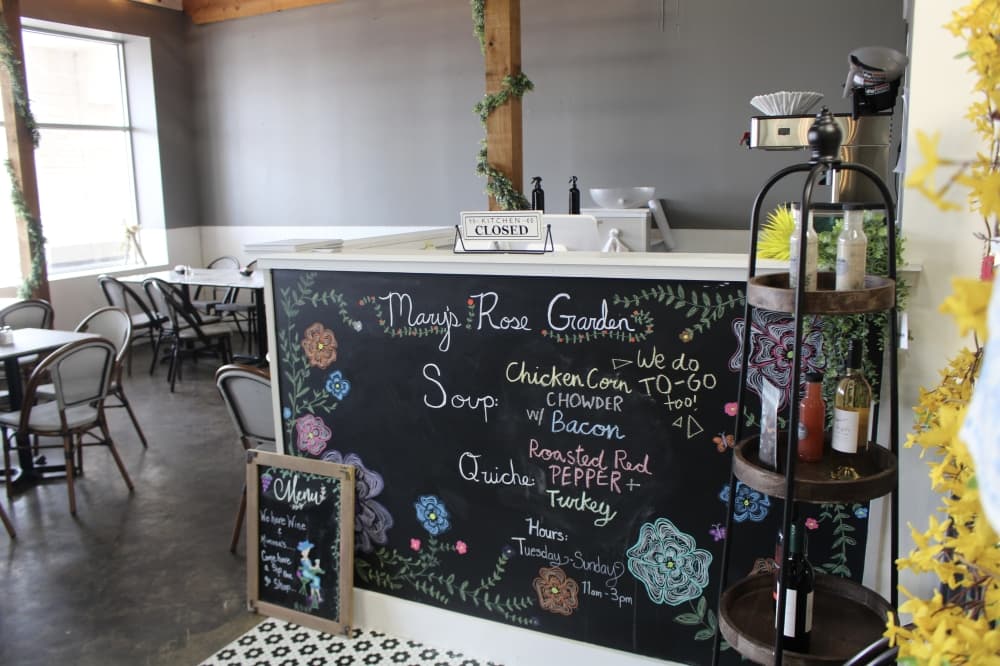 KITCHEN
CLOSED
Mary's Rose Garden
We do
TO-GO
too!
Soup: Chicken Corn
CHOWDER
w/ Bacon
Quiche: Roasted Red
PEPPER +
Turkey
Hours:
Tuesday-Sunday
11am-3pm
Menu
We have Wine
&
Mimosas...
Come have
a Sip and
Shop...